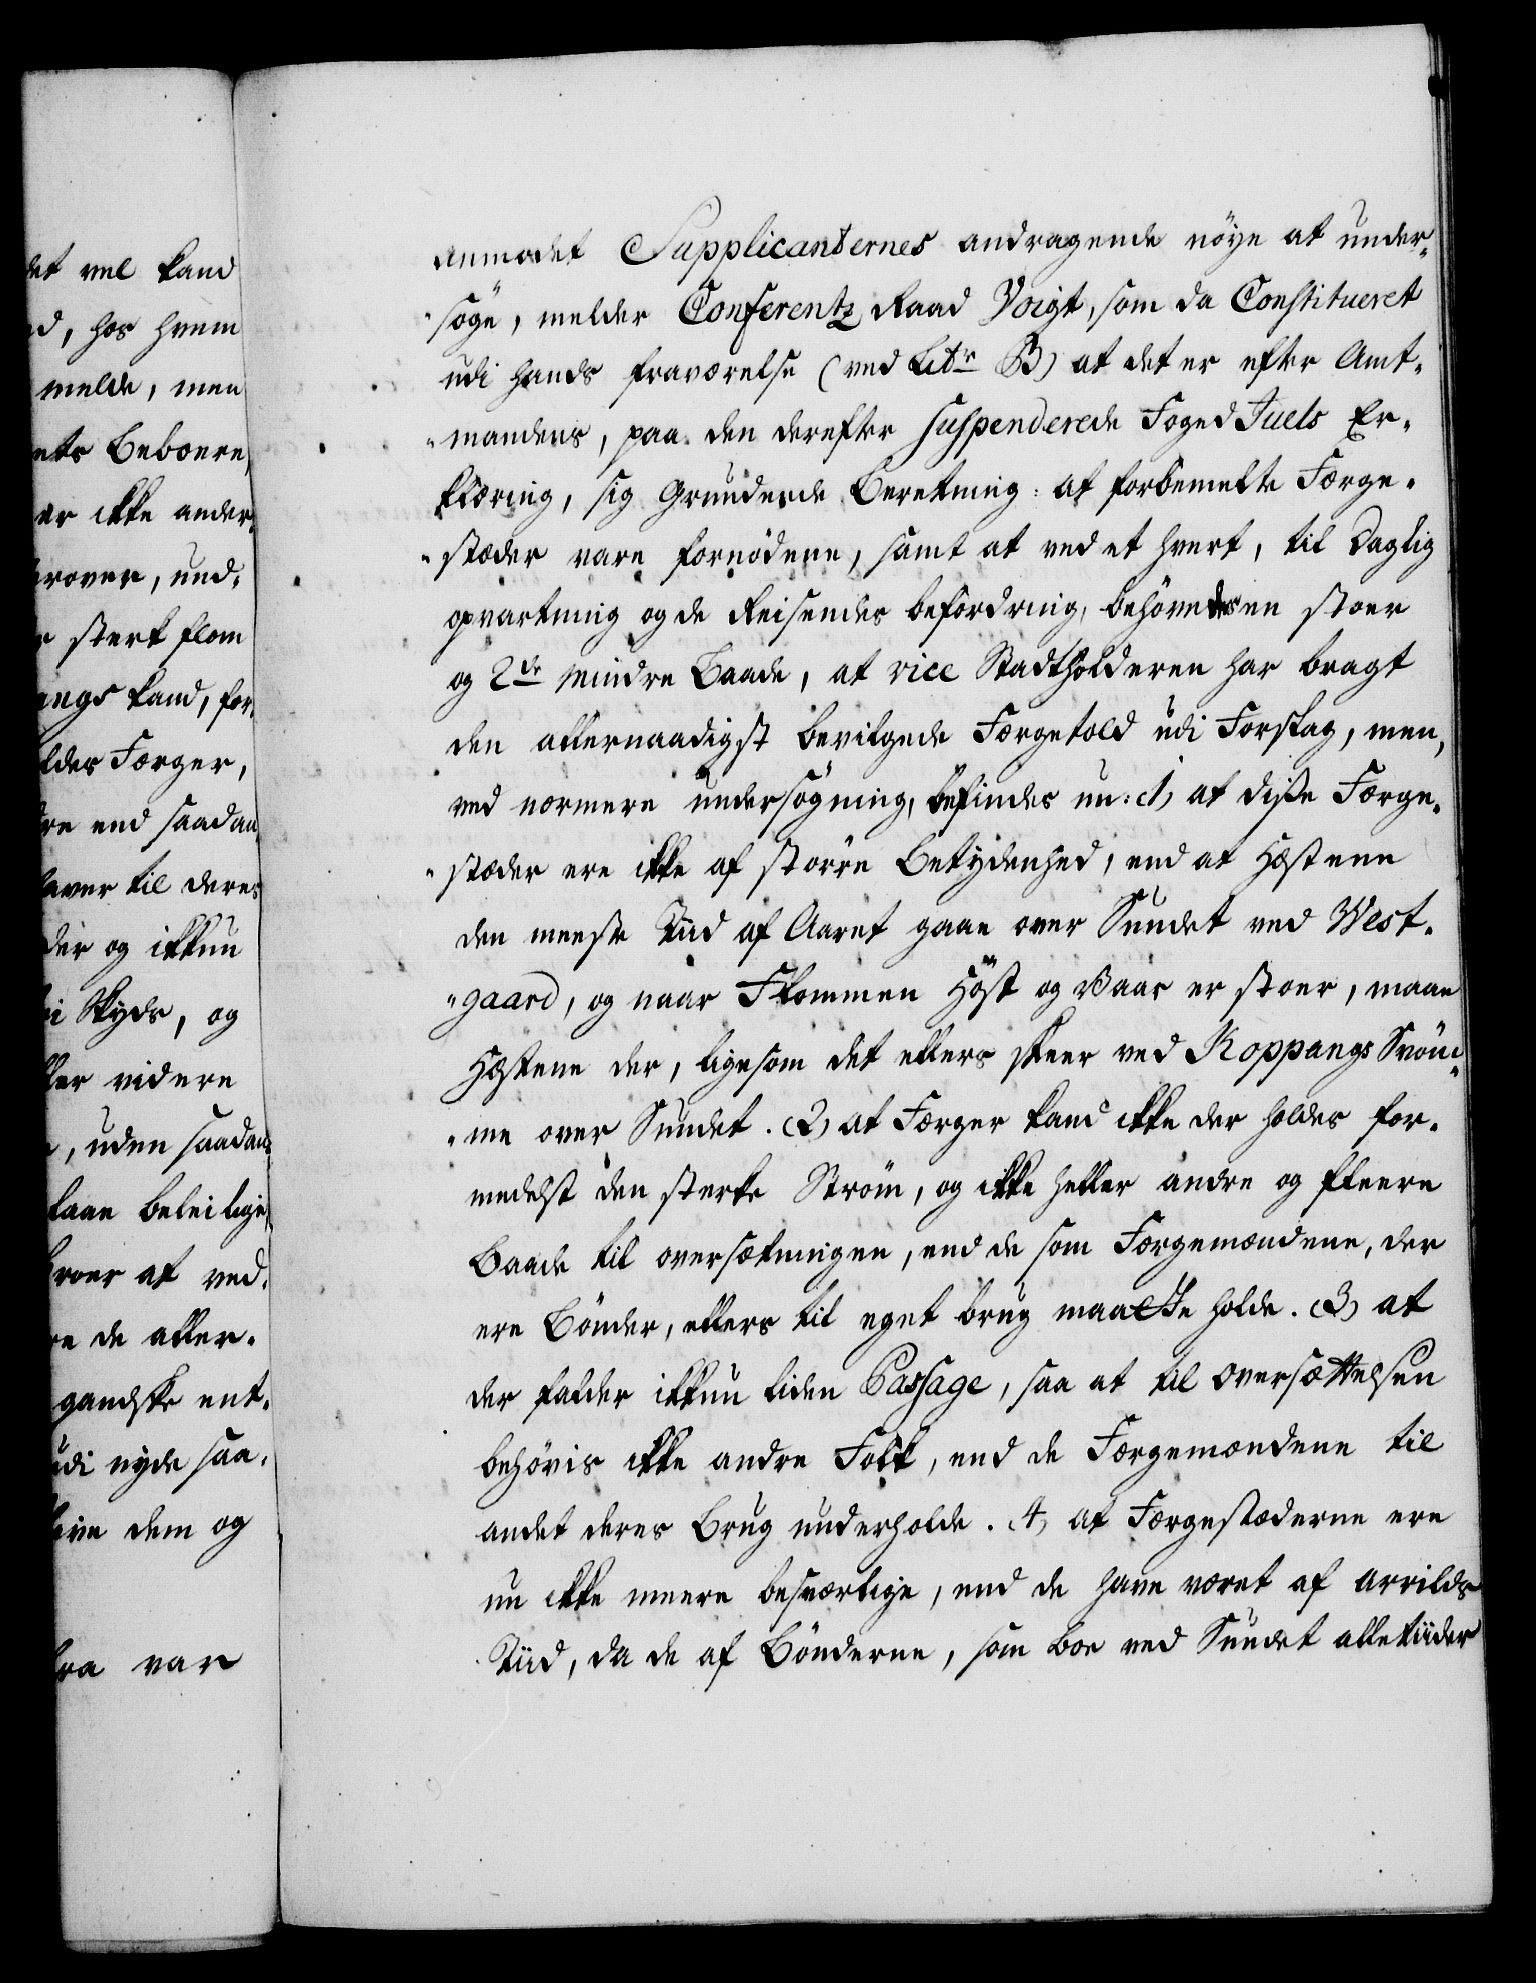 det vel kand
d, hos hvem
melde, men
ets Beboere,
er ikke ander,
rover, und,
r sterk flom
angs kand, for,
ldes Færger,
re end saadan,
aver til deres
der og ikkun
i Skyds, og
ller videre
, uden saadan,
kaae beleilige
roer at ved,
re de aller-
gandske ent-
udi nyde saa,
live dem og
fra var
anmodet Supplicanternes andragende nöye at under„
„söge, melder Conferentz Raad Voigt, som da Constitueret
udi hands fraværelse (ved Litr B) at det er efter Amt„
„mandens, paa den derefter suspenderede Foged Juels Er„
klæring, sig Grundede Beretning: at forbemelte Færge„
„stæder vare fornödene, samt at ved et hvert, til Daglig
opvartning og de Reisendes befordring, behövedes en stoer
og 2de mindre Baade, at vice Stadtholderen har bragt
den allernaadigst bevilgede Færgetold udi Forslag, men,
ved nærmere undersögning, befindes nu: (1, at disse Færge„
„stæder ere ikke af större Betydenhed, end at Hæstene
den meeste Tiid af Aaret gaae over Sundet ved West„
„gaard, og naar Flommen Höst og Vaar er stoer, maae
Hæstene der, ligesom det ellers skeer ved Koppangs Svöm„
„me over Sundet. (2, at Færger kand ikke der holdes for„
medelst den sterke Ström, og ikke heller andre og fleere
Baade til oversætningen, end de som Færgemændene, der
ere Bönder, ellers til eget brug maatte holde. (3) at
der falder ikkun liden Passage, saa at til oversættelsen
behövis ikke andre Folk, end de Færgemændene til
andet deres Brug underholde. (4, at Færgestæderne ere
nu ikke meere besværlige, end de have været af arrilds
Tiid, da de af Bönderne, som boe ved Sundet alletiider